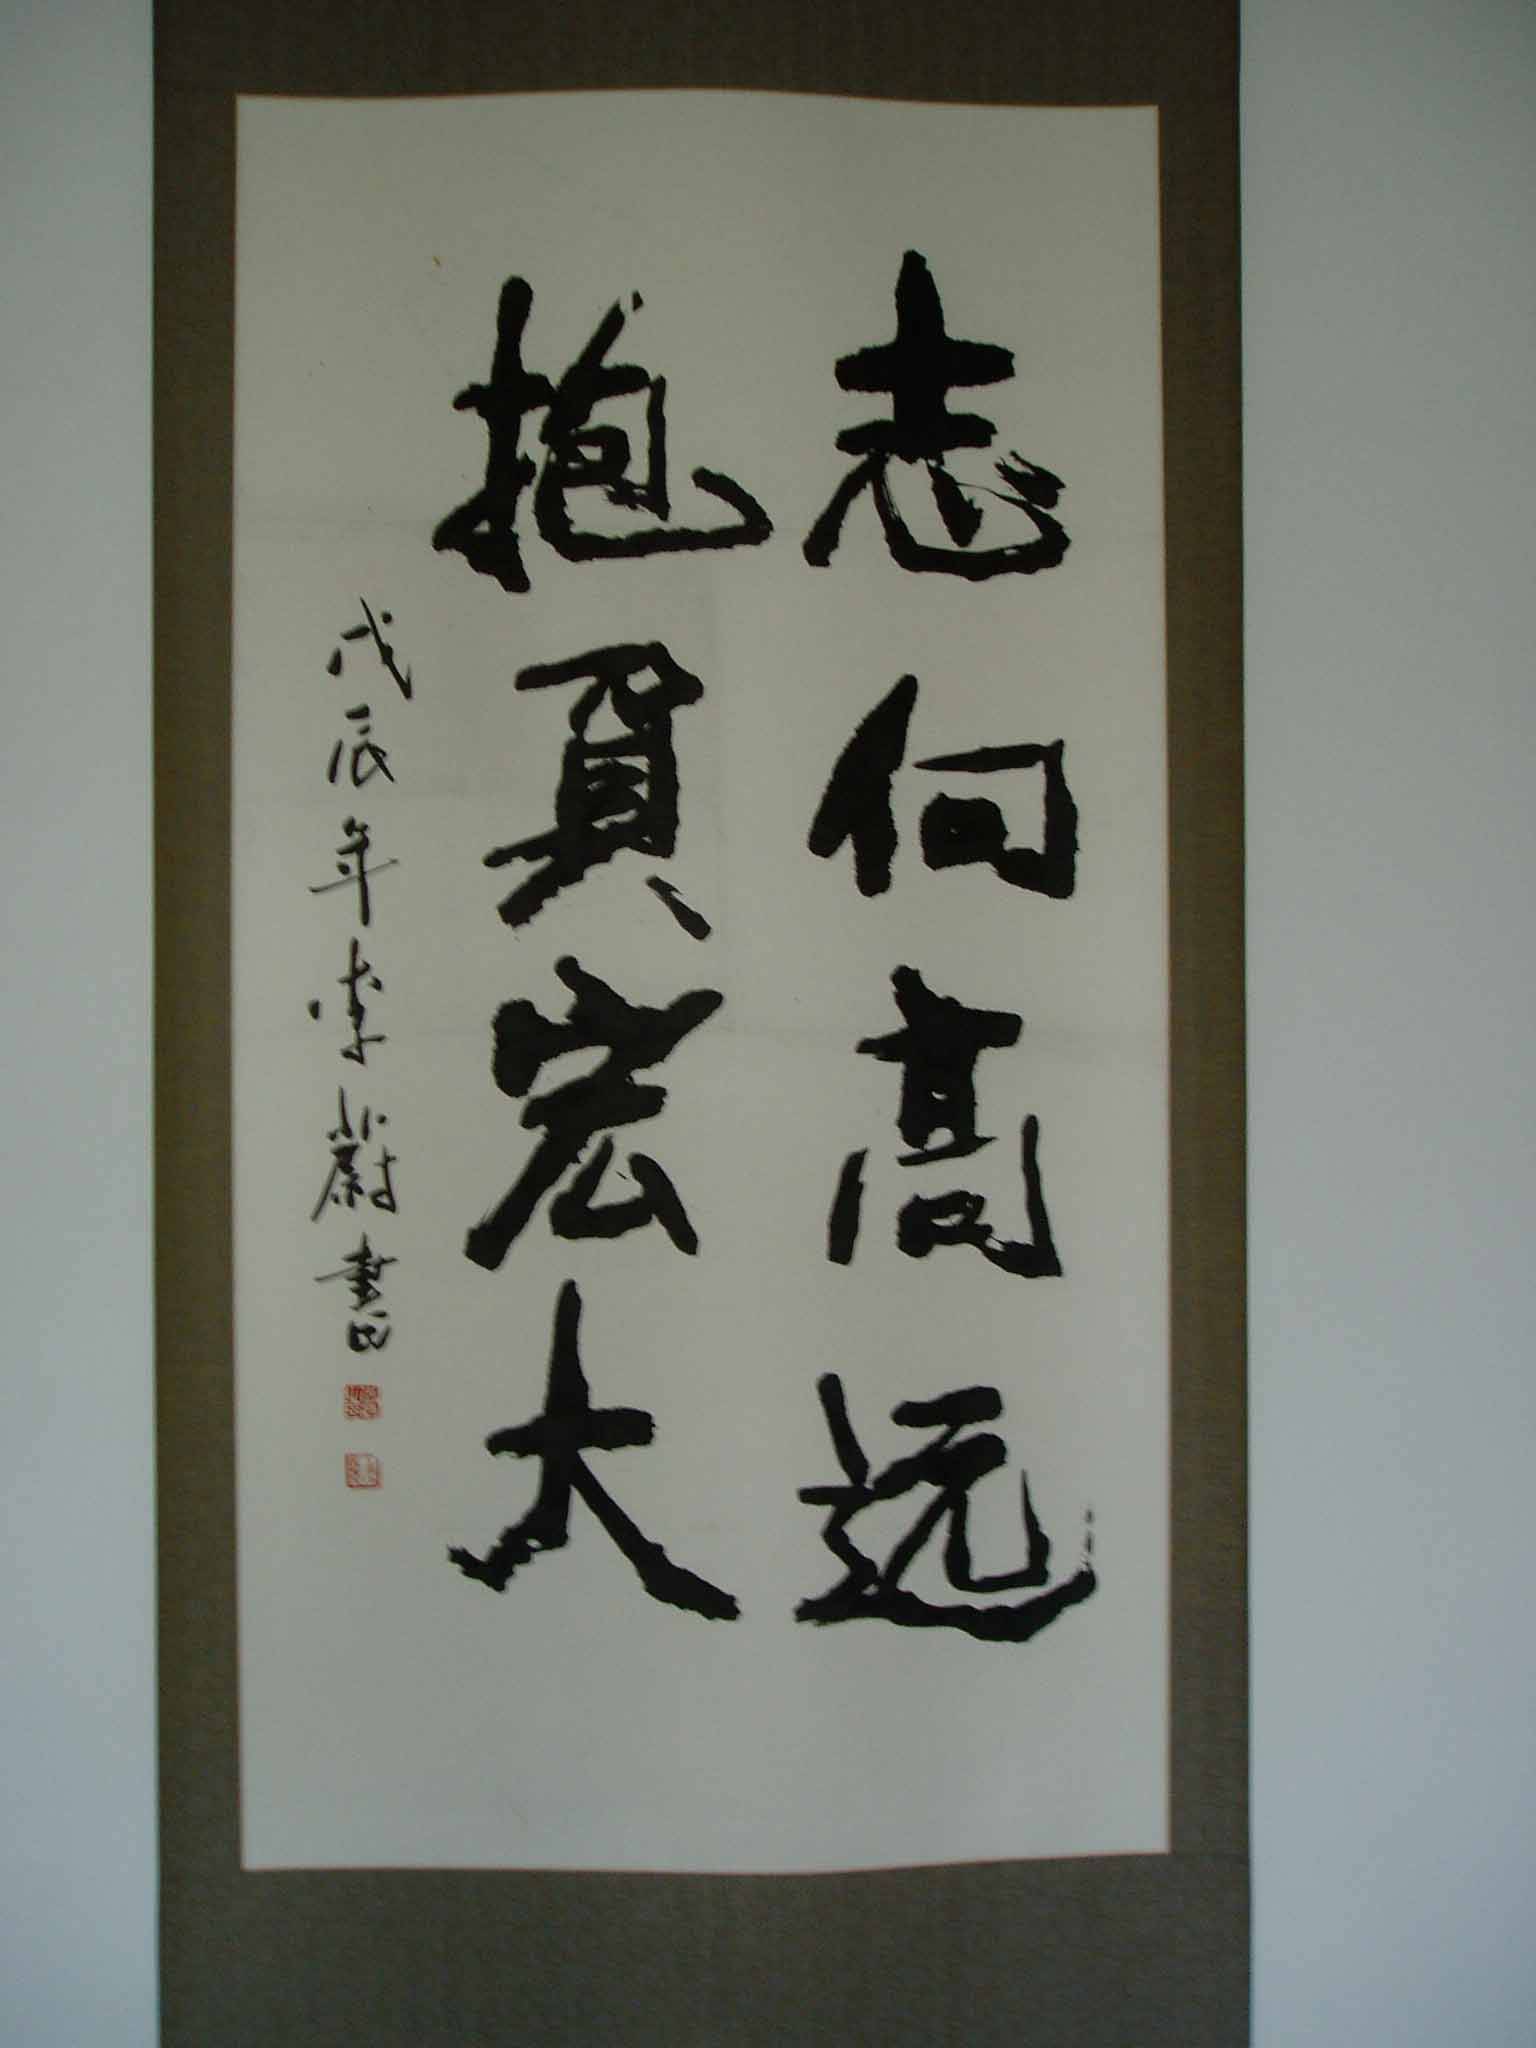 志向高远
抱負宏大
戊辰年李蔚書